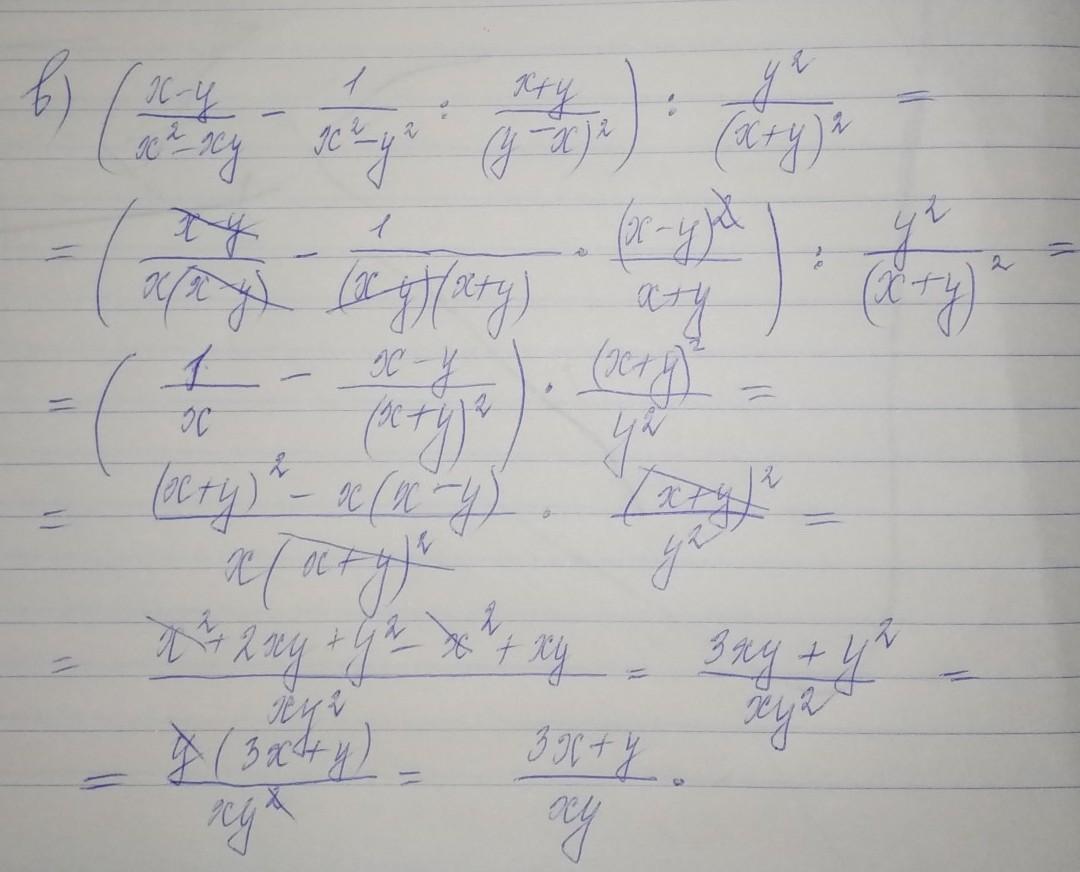 в) ( (x-y)/(x²-xy) - 1/(x²-y²) : (x+y)/(y-x)² ) : y²/(x+y)² =
= ( (x-y)/(x(x-y)) - 1/((x-y)(x+y)) · (x-y)²/(x+y) ) : y²/(x+y)² =
= ( 1/x - (x-y)/(x+y)² ) · (x+y)²/y² =
= ((x+y)² - x(x-y))/(x(x+y)²) · (x+y)²/y² =
= (x²+2xy+y²-x²+xy)/(xy²) = (3xy+y²)/(xy²) =
= (y(3x+y))/(xy²) = (3x+y)/(xy) .